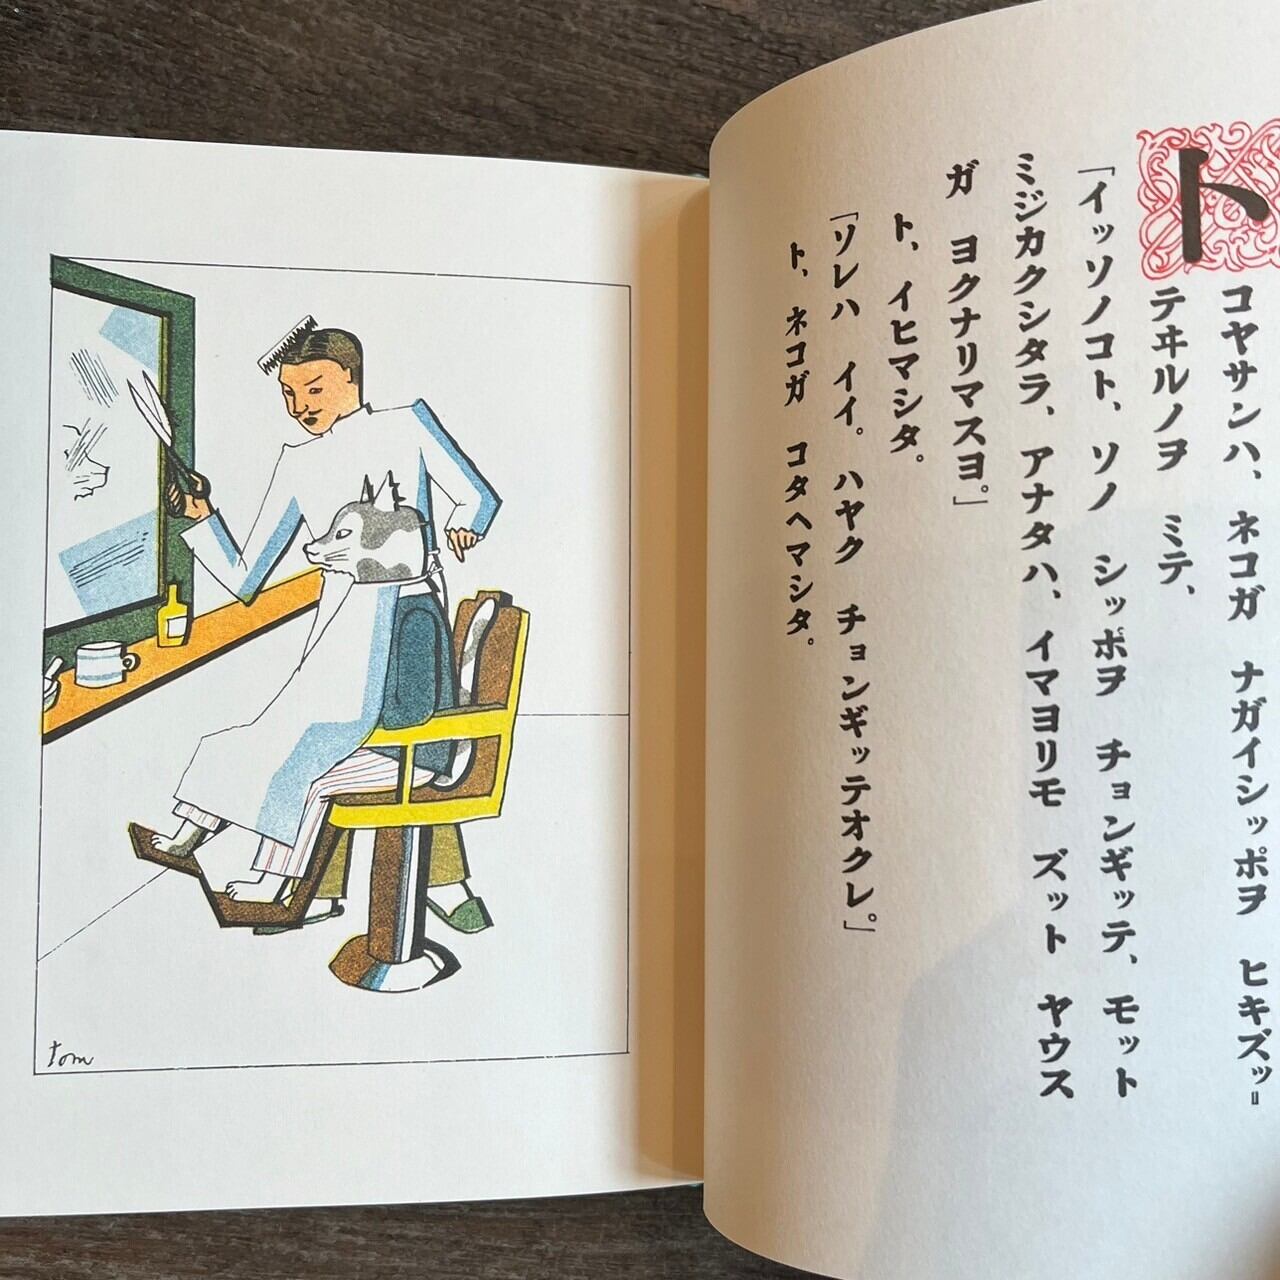 トコヤサンハ、ネコガ ナガイシッポヲ ヒキズッ=
テヰルノヲ ミテ、
「イッソノコト、ソノ シッポヲ チョンギッテ、モット
ミジカクシタラ、アナタハ、イマヨリモ ズット ヤウス
ガ ヨクナリマスヨ。」
ト、イヒマシタ。
「ソレハ イイ。ハヤク チョンギッテオクレ。」
ト、ネコガ コタヘマシタ。
tom